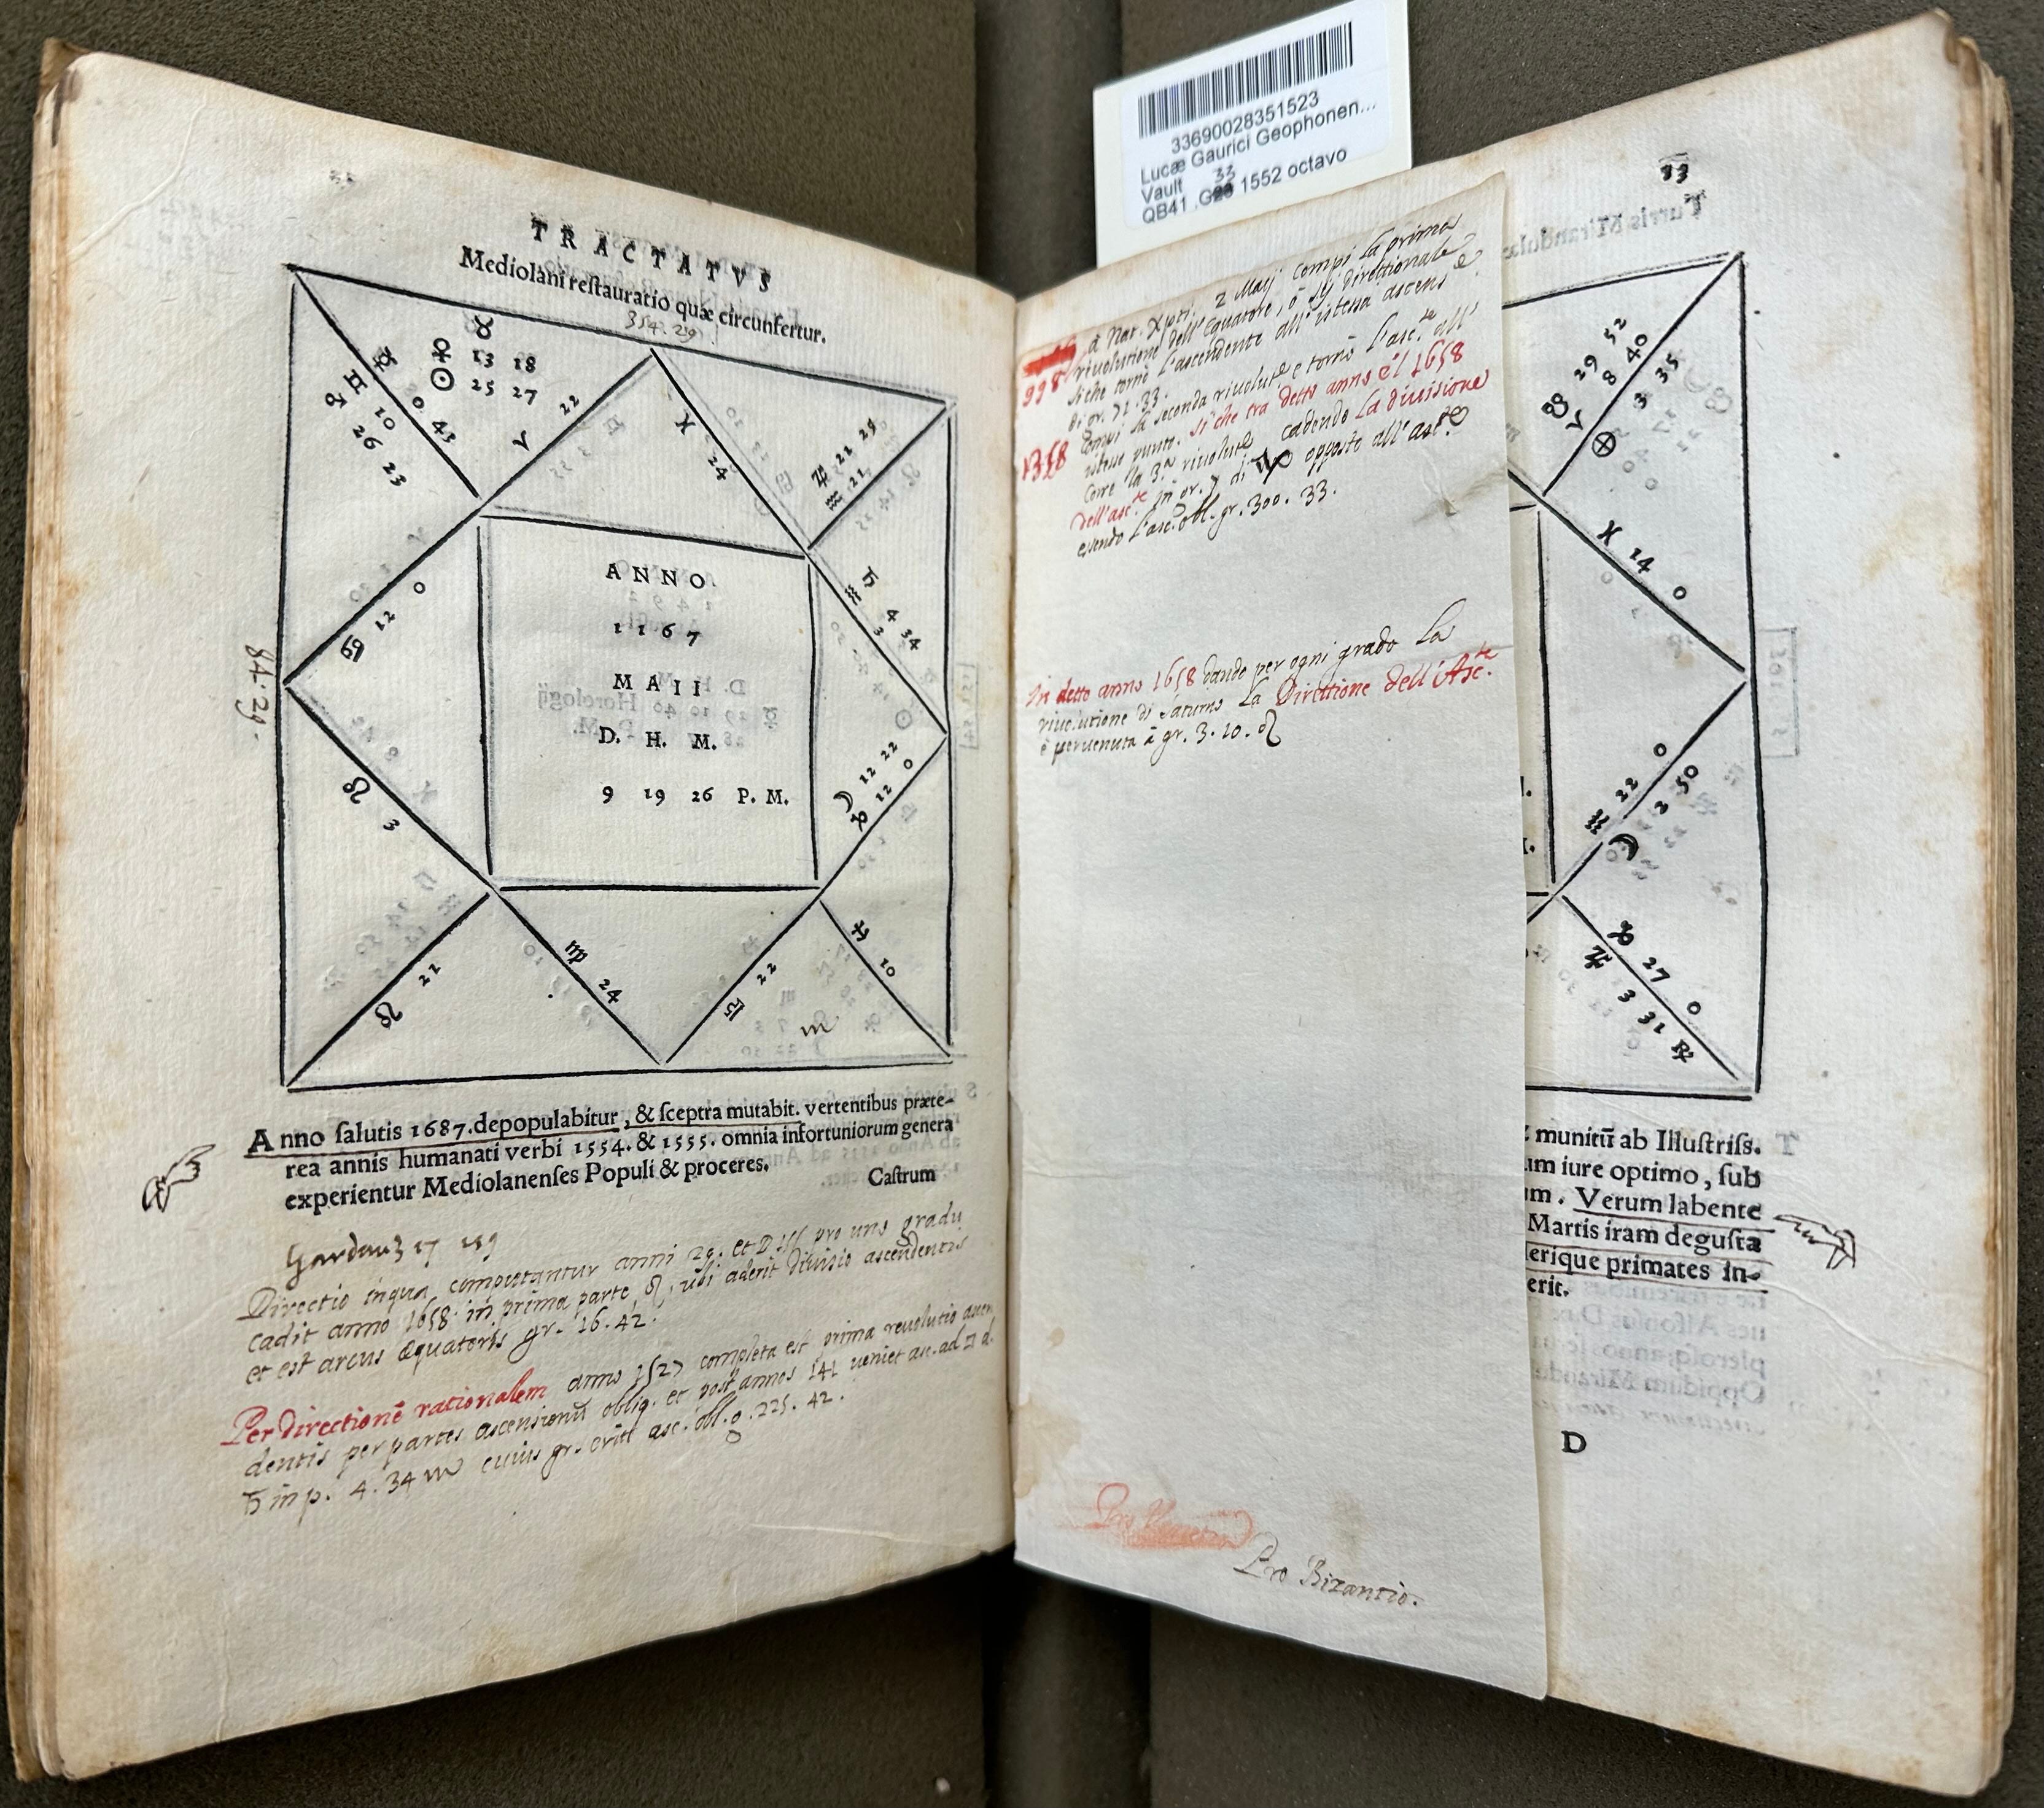 33690028351523
Lucæ Gaurici Geophonen...
Vault 33
QB41 .G 1552 octavo
TRACTATVS
Mediolani reſtauratio quæ circunfertur.
354. 29
♉
♀ 13 18
☉ 25 27
☿ 0 43
♊ 10
♂ 26 23
♈ 22
♓ 24
♃ 22 29
♒ 21
♋ 12 0
84. 29.
♄ 4 34
♒ 3
ANNO
1167
MAII
D. H. M.
9 19 26 P. M.
☽ 12 22
♑ 12 0
♌ 3
♌ 21
♍ 24
♎ 22
♐ 10
♏
Anno ſalutis 1687. depopulabitur, & ſceptra mutabit. vertentibus præte-
rea annis humanati verbi 1554. & 1555. omnia infortuniorum genera
experientur Mediolanenſes Populi & proceres.
Caſtrum
Directio in qua computantur anni 29. et D. 155 pro uno gradu
cadit anno 1658. in prima parte ♌, ubi aderit divisio ascendentis
et est arcus Æquatoris gr. 16. 42.
Per directionē rationalem anno 1527 completa est prima revolutio ascen
dentis per partes ascensionū obliq. et post annos 141 veniet asc. ad □
♄ in p. 4. 34 ♏ cuius gr. erit asc. obl. g. 225. 42.
998 à Nat. Xpti. 2 Maij compi la prima
rivolutione dell'Equatore, ò sij direttionale
siche tornò l'ascendente all'istessa ascens
di gr. 71. 33.
1358 Compi la seconda rivolut.e e tornò l'asc.te all'
istesso punto. Si che tra detto anno è l 1658
corre la 3.a rivolut.e cadendo la divisione
dell'asc.te in gr. 7 di ♑ opposto all'asc.te
essendo l'asc. obl. gr. 300. 33.
In detto anno 1658 dando per ogni grado la
rivolutione di saturno la Direttione dell'Asc.te
è pervenuta à gr. 3. 20. ♌
Pro Bizantio.
33
29 52
♉ 8 40
♈ 3 35
⊕
♓ 14 0
♒ 22 0
☽ 3 50
♑ 27 0
♃ 3 31 ℞
munitū ab Illuſtriſs.
um iure optimo, ſub
m. Verum labente
Martis iram deguſta
lerique primates in-
erit.
D